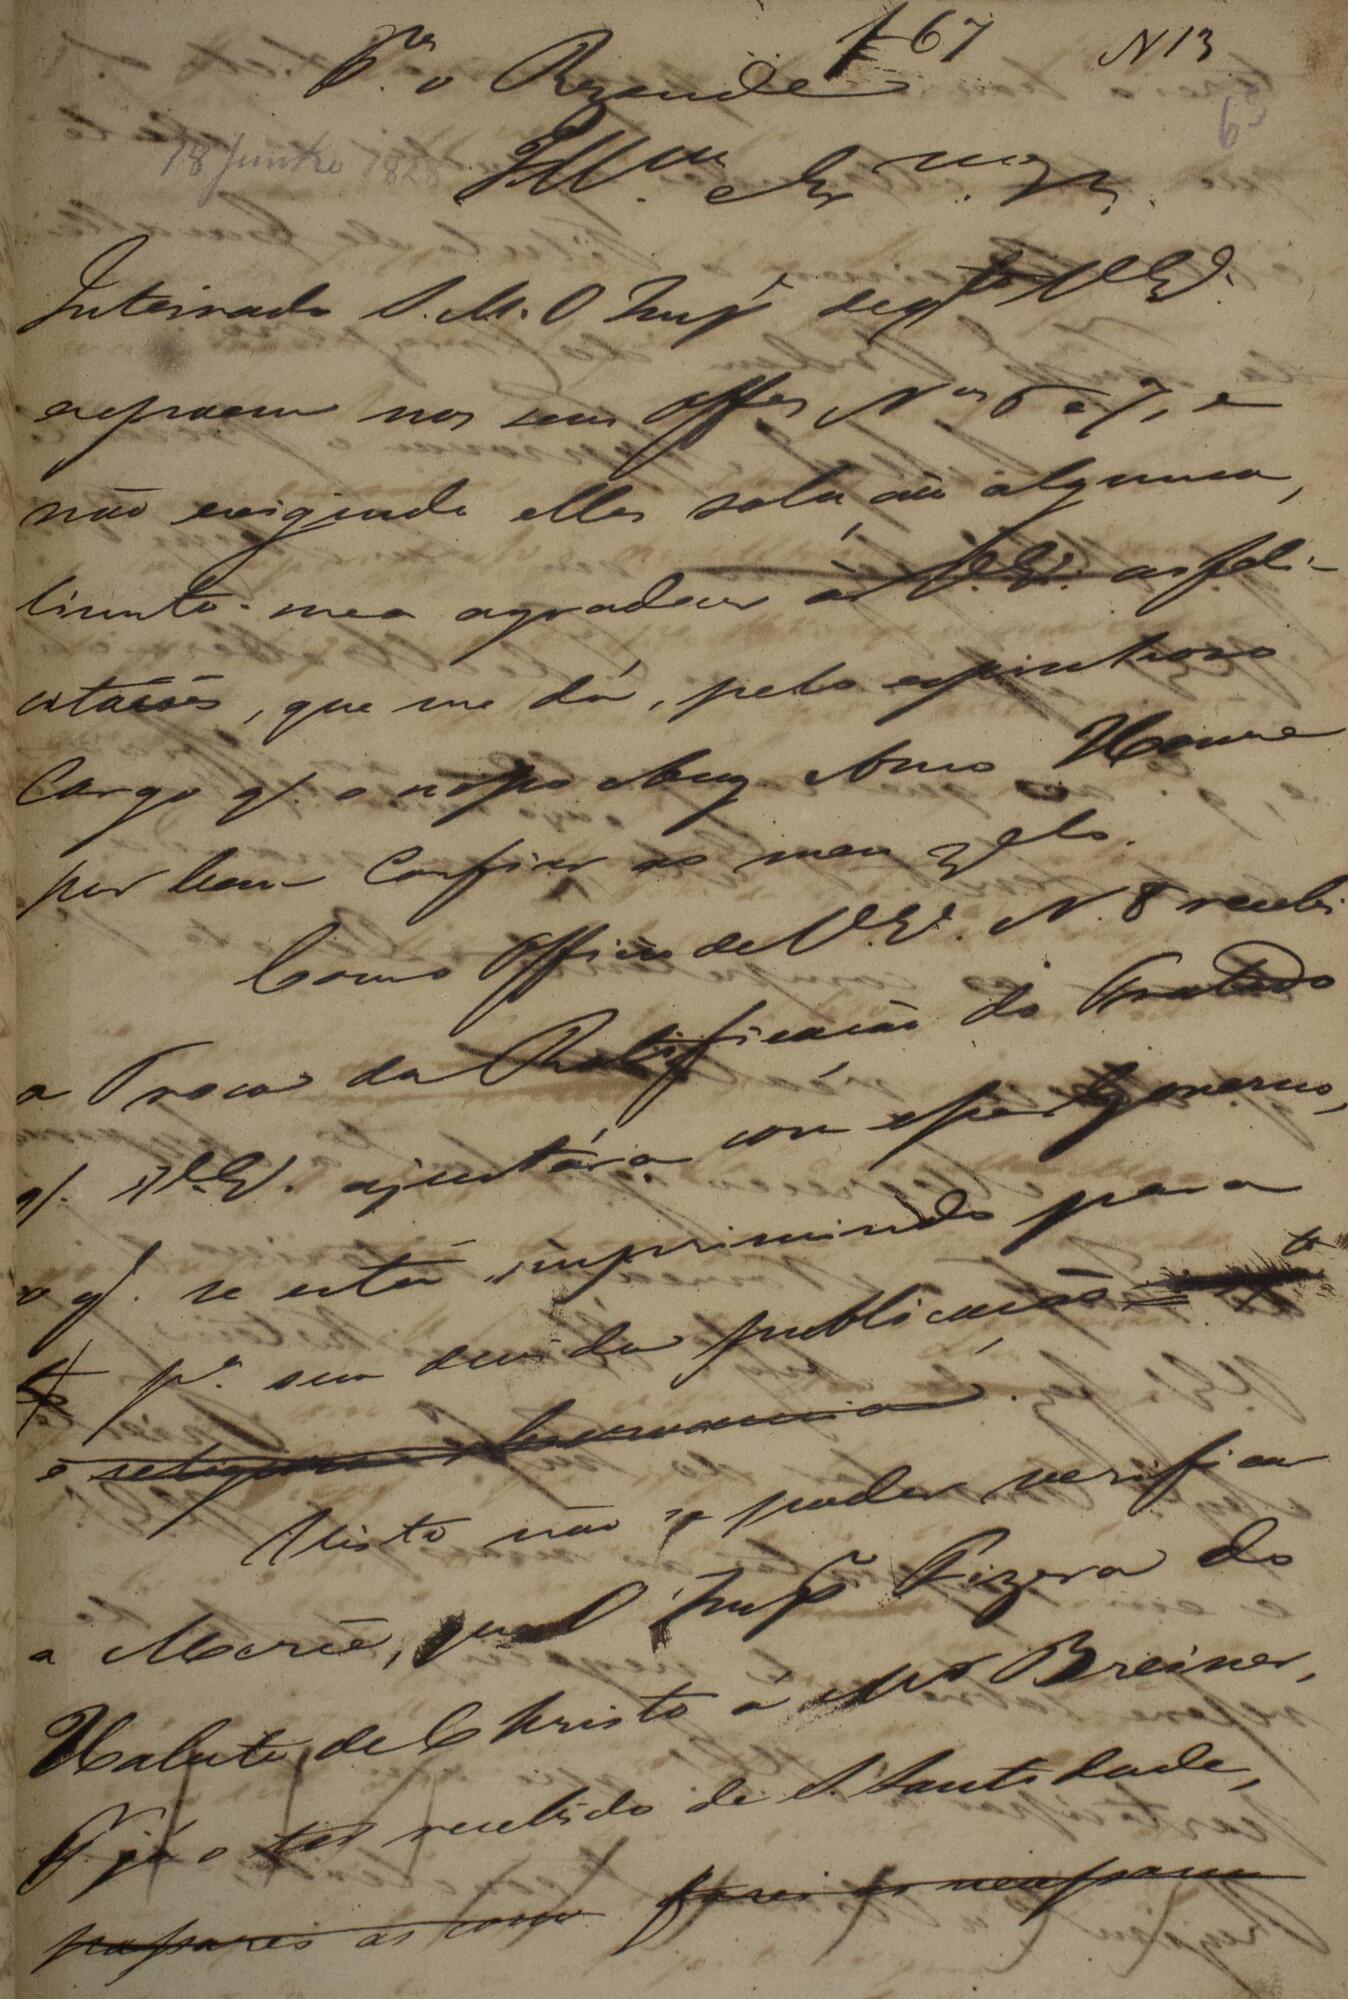 Pa. o Rezende 167 N 13
63
18 Junho 1828
Illmo. Exmo. Snr.
Inteirado S. M. O Impr. de qto. V.Ea.
expoem nos seus offos. Nos. 6 e 7, e
não exigindo elles solução alguma,
limito-me a agradecer à V.Ea. as feli-
citações, que me dá, pelo espinhoso
Cargo q. o nosso Aug. Amo Houve
por bem Confiar ao meu zelo.
Com o Officio de V.Ea. N. 8 recebi
a Troca da Ratificação do Tratado
q. V.Ea. ajustára com esse Governo,
o q. se está imprimindo para
pa. sua devida publicação
e
Visto não se poder verificar
a Mercê, que O Impr. Fizera do
Habito de Christo á Mr. Breiner,
Pr. já o ter recebido de S. Santidade,